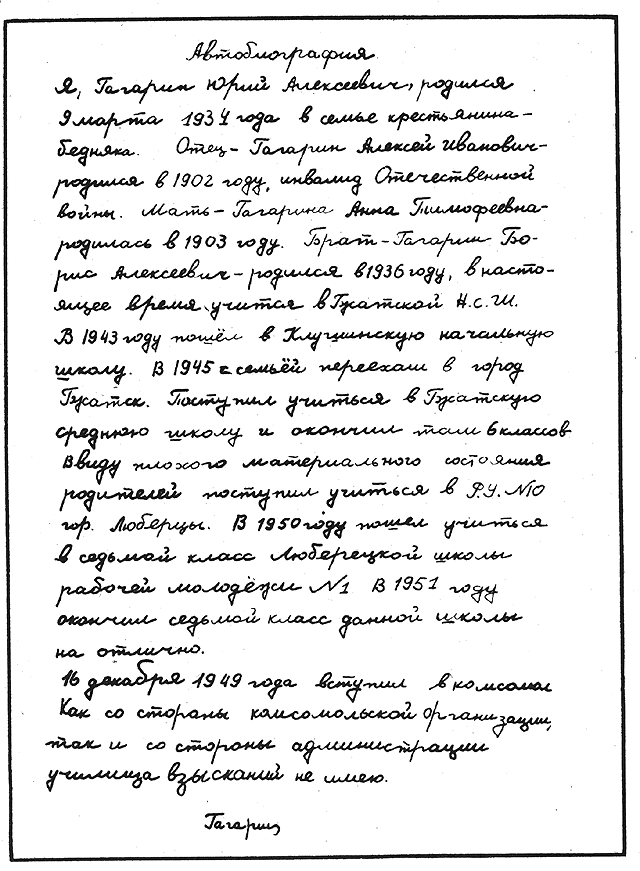 Автобиография
Я, Гагарин Юрий Алексеевич, родился
9 марта 1934 года в семье крестьянина-
бедняка. Отец - Гагарин Алексей Иванович-
родился в 1902 году, инвалид Отечественной
войны. Мать - Гагарина Анна Тимофеевна-
родилась в 1903 году. Брат - Гагарин Бо-
рис Алексеевич - родился в 1936 году, в насто-
ящее время учится в Гжатской Н.с.Ш.
В 1943 году пошёл в Клушинскую начальную
школу. В 1945 с семьёй переехал в город
Гжатск. Поступил учиться в Гжатскую
среднюю школу и окончил там 6 классов
Ввиду плохого материального состояния
родителей поступил учиться в Р.У. №10
гор. Люберцы. В 1950 году пошел учиться
в седьмой класс Люберецкой школы
рабочей молодёжи №1 В 1951 году
окончил седьмой класс данной школы
на отлично.
16 декабря 1949 года вступил в комсомол
Как со стороны комсомольской организации,
так и со стороны администрации
училища взысканий не имею.
Гагарин